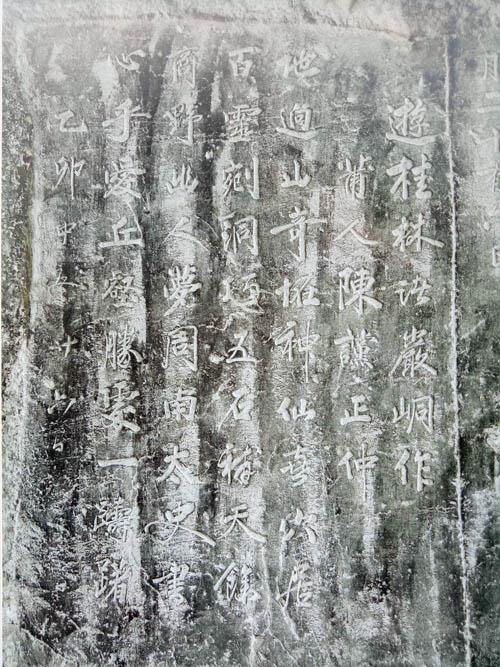 遊桂林諸巖峒作
莆人陳讜正仲
地迥山奇恠神仙喜此居
百靈剜洞五石補天餘
商野幽人夢周南太史書
心乎愛丘壑勝處一躊躇
乙卯中冬十六日